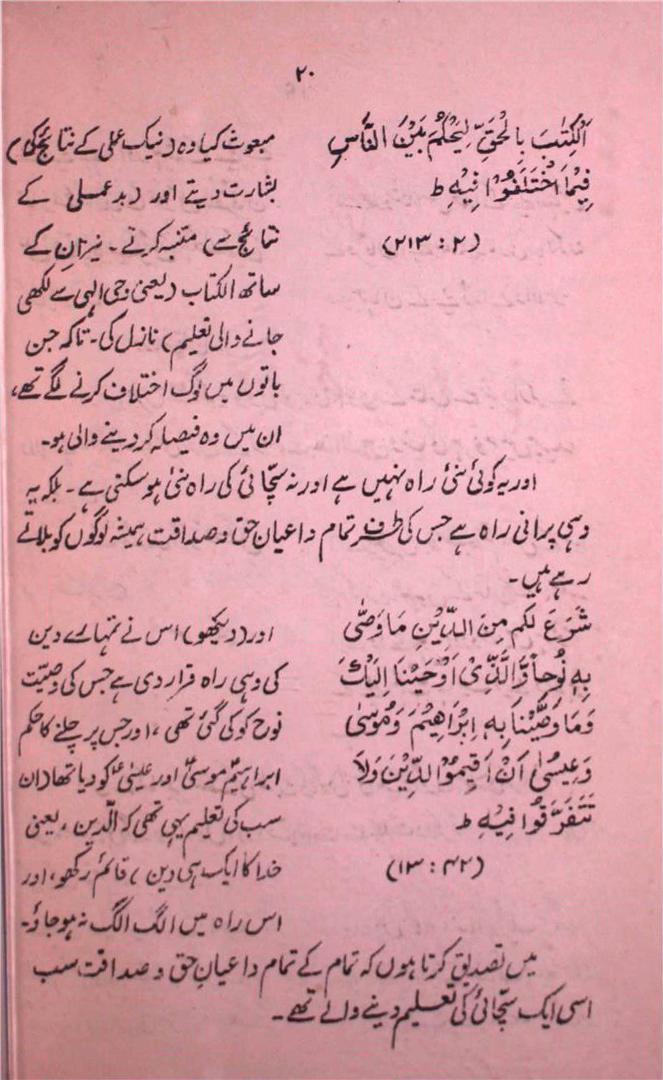 ۲۰
اَلْکِتٰبَ بِالْحَقِّ لِیَحْکُمَ بَیْنَ النَّاسِ
فِیْمَا اخْتَلَفُوْا فِیْہِ ط
(۲ : ۲۱۳)
مبعوث کیا وہ (نیک عملی کے نتائج کی)
بشارت دیتے اور (بدعملی کے
نتائج سے) متنبہ کرتے۔ نیز ان کے
ساتھ الکتاب (یعنی وحی الٰہی سے لکھی
جانے والی تعلیم) نازل کی۔ تاکہ جن
باتوں میں لوگ اختلاف کرنے لگے تھے،
ان میں وہ فیصلہ کر دینے والی ہو۔
اور یہ کوئی نئی راہ نہیں ہے اور نہ سچائی کی راہ نئی ہو سکتی ہے۔ بلکہ یہ
وہی پرانی راہ ہے جس کی طرف تمام داعیان حق و صداقت ہمیشہ لوگوں کو بلاتے
رہے ہیں۔
شَرَعَ لَکُم مِنَ الدِّیْنِ مَا وَصّٰی
بِہٖ نُوحاً وَّالَّذِیْ اَوْحَیْنَا اِلَیْكَ
وَمَا وَصَّیْنَا بِہٖ اِبْرَاھِیْمَ وَمُوْسٰی
وَعِیْسٰی اَنْ اَقِیْمُوا الدِّیْنَ وَلَا
تَتَفَرَّقُوا فِیْہِ ط
(۴۲ : ۱۳)
اور (دیکھو) اس نے تمہارے دین
کی وہی راہ قرار دی ہے جس کی وصیت
نوح کو کی گئی تھی، اور جس پر چلنے کا حکم
ابراہیمؑ موسیٰؑ اور عیسیٰؑ کو دیا تھا (ان
سب کی تعلیم یہی تھی کہ الّدین، یعنی
خدا کا ایک ہی دین) قائم رکھو، اور
اس راہ میں الگ الگ نہ ہو جاؤ۔
میں تصدیق کرتا ہوں کہ تمام کے تمام داعیانِ حق و صداقت سب
اسی ایک سچّائی کی تعلیم دینے والے تھے۔